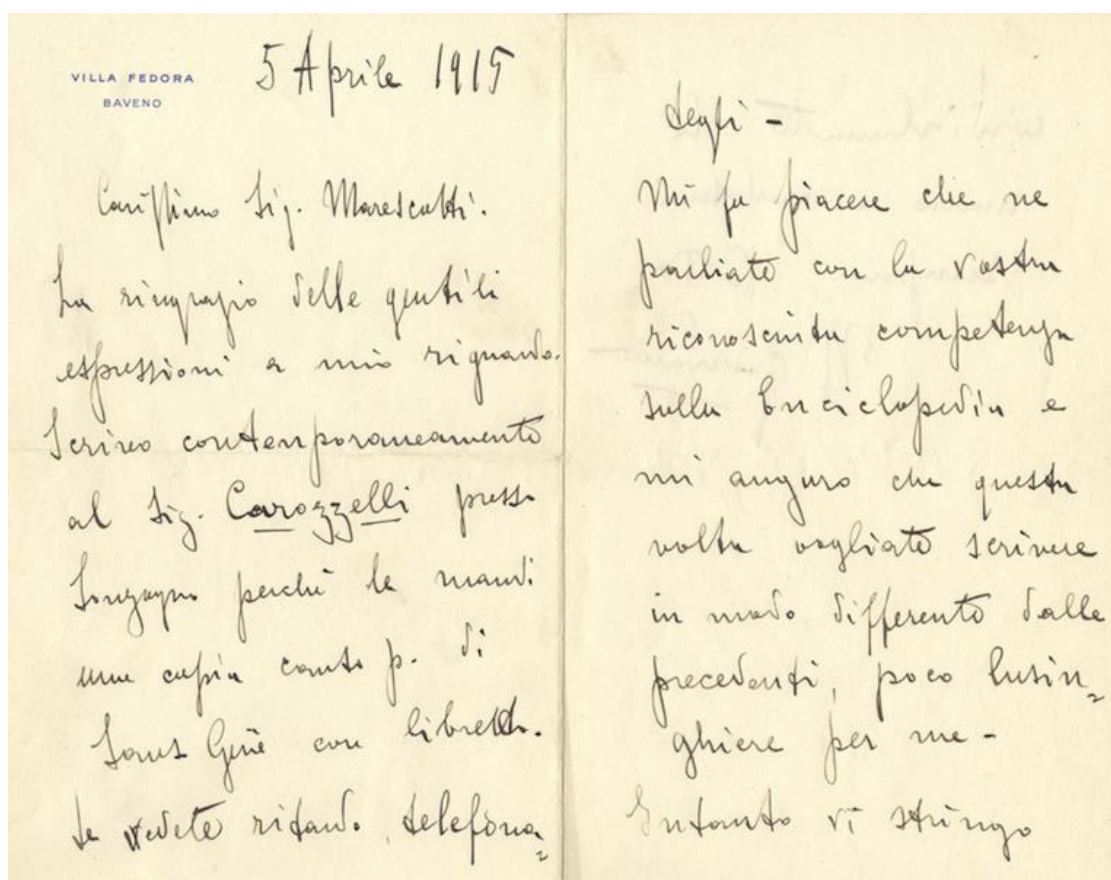 VILLA FEDORA
BAVENO
5 Aprile 1915
Carissimo Sig. Marescotti.
La ringrazio delle gentili
espressioni a mio riguardo.
Scrivo contemporaneamente
al Sig. Carozzelli presso
Sonzogno perchè le mandi
una copia canto p. di
Sans Gêne con libretto.
Se vedete ritardo, telefona=
tegli -
Mi fa piacere che ne
parliate con la vostra
riconosciuta competenza
sulla Enciclopedia e
mi auguro che questa
volta vogliate scrivere
in modo differente dalle
precedenti, poco lusin=
ghiere per me -
Intanto vi stringo